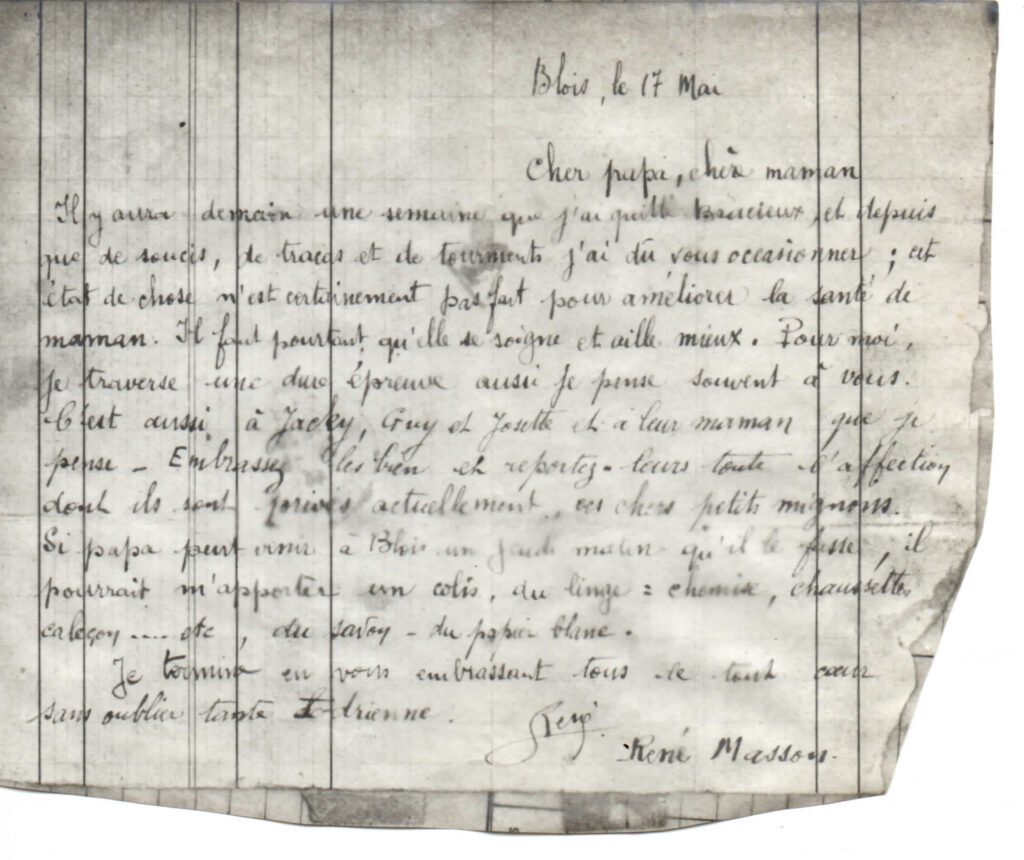 Blois, le 17 Mai
Cher papa, chère maman
Il y aura demain une semaine que j'ai quitté Bracieux, et depuis
que de soucis, de tracas et de tourments j'ai dû vous occasionner ; cet
état de chose n'est certainement pas fait pour améliorer la santé de
maman. Il faut pourtant qu'elle se soigne et aille mieux. Pour moi,
je traverse une dure épreuve aussi je pense souvent à vous.
C'est aussi à Jacky, Guy et Josette et à leur maman que je
pense - Embrassez les bien et reportez-leurs toute l'affection
dont ils sont privés actuellement, ces chers petits mignons.
Si papa peut venir à Blois un jeudi matin qu'il le fasse, il
pourrait m'apporter un colis, du linge = chemise, chaussettes
caleçon .... etc, du savon - du papier blanc.
Je termine en vous embrassant tous de tout cœur
sans oublier tante Adrienne.
René
René Masson.